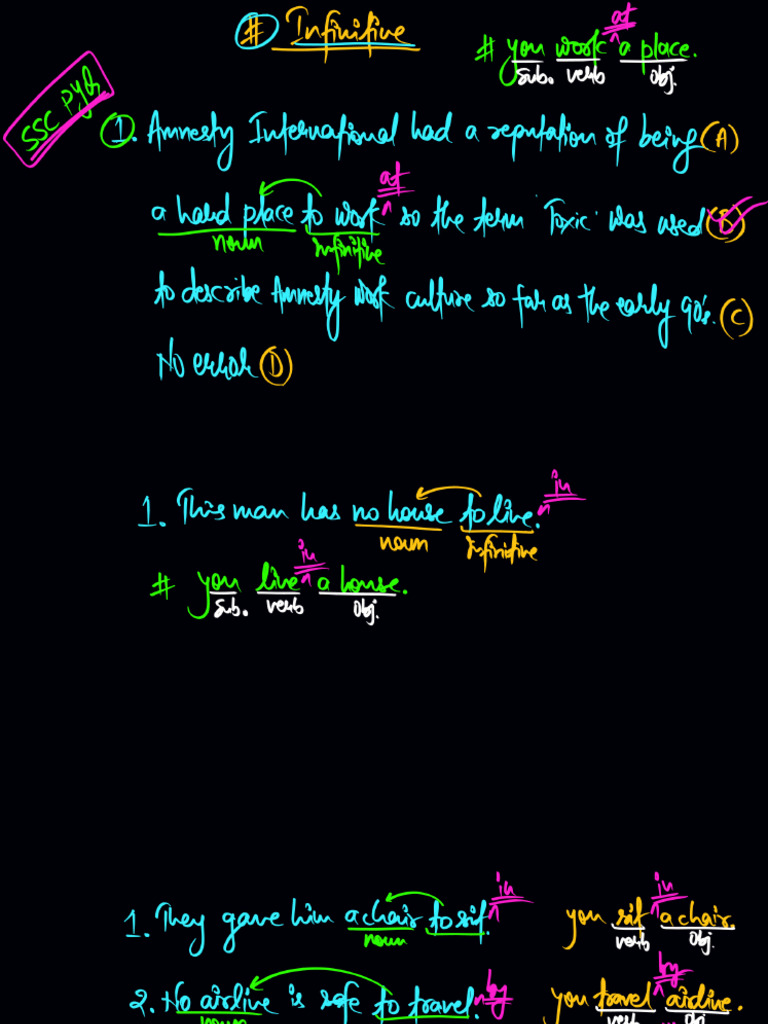 # Infinitive
at
# you work ^ a place.
sub. verb obj.
SSC PYQ
1. Amnesty International had a reputation of being (A)
at
a hard place to work ^ so the term 'Toxic' was used (B)
noun infinitive
to describe Amnesty work culture so far as the early 90's. (C)
No error (D)
in
1. This man has no house to live ^.
noun infinitive
in
# you live ^ a house.
sub. verb obj.
in in
1. They gave him a chair to sit ^. you sit ^ a chair.
noun verb obj.
by by
2. No airline is safe to travel ^. you travel ^ airline.
noun verb obj.